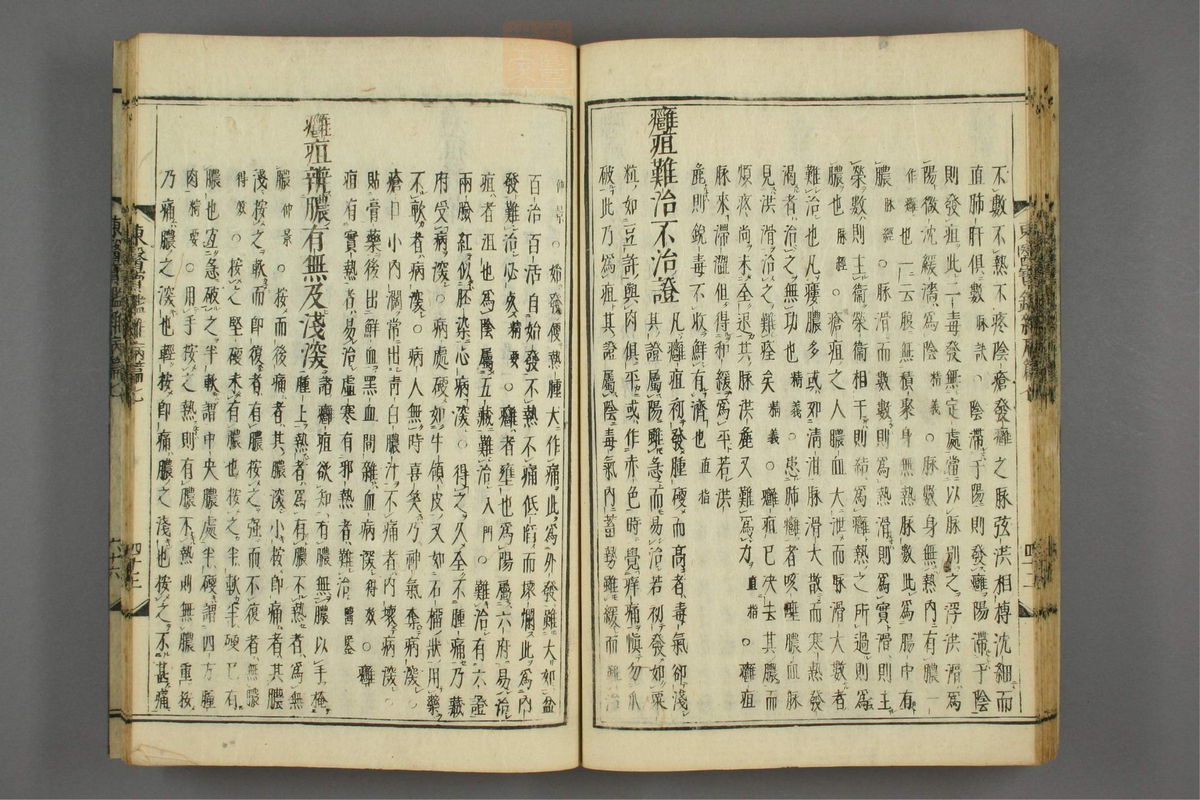 不數不熱不疼陰瘡發癰之脉弦洪相搏沈細而
直肺肝俱數脉訣○陰滯于陽則發癰陽滯于陰
則發疽此二毒發無定處當以脉別之浮洪滑爲
陽微沈緩濇爲陰精義○脉數身無熱內有膿一
作癰也一云腹無積聚身無熱脉數此爲腸中有
膿脉經○脉滑而數數則爲熱滑則爲實滑則主
榮數則主衞榮衞相干則結爲癰熱之所過則爲
膿也脉經○瘡疽之人膿血大泄而脉滑大數者
難治也凡瘻膿多或如淸泔脉滑大散而寒熱發
渴者治之無功也精義○患肺癰者咳唾膿血脉
見洪滑治之難痊矣精義○癰疽已決去其膿而
煩疼尚未全退其脉洪麄又難爲力直指○癰疽
脉來滯澀但得和緩爲平若洪
麄則銳毒不收鮮有濟也直指
癰疽難治不治證
凡癰疽初發腫硬而高者毒氣却淺
其證屬陽雖急而易治若初發如粟
粒如豆許與肉俱平或作赤色時覺痒痛愼勿爪
破此乃爲疽其證屬陰毒氣內蓄勢雖緩而難治
仲景○始發便熱腫大作痛此爲外發雖大如盆
百治百活自始發不熱不痛低陷而壞爛此爲內
發難治必死精要○癰者壅也爲陽屬六府易治
疽者沮也爲陰屬五藏難治入門○難治有六證
兩臉紅似胚染心病深○得之久全不腫痛乃藏
府受病深○病處硬如牛領皮又如石榴狀用藥
不軟者病深○病人無時喜笑乃神氣耗病深○
瘡口小內濶常出靑白膿汁不痛者內壞病深○
貼膏藥後出鮮血黑血間雜血病深得效○癰
疽有實熱者易治虛寒有邪熱者難治醫鑑
癰疽辨膿有無及淺深
諸癰疽欲知有膿無膿以手掩
腫上熱者爲有膿不熱者爲無
膿仲景○按而後痛者其膿深小按卽痛者其膿
淺按之軟而卽復者有膿按之強而不復者無膿
得效○按之堅硬未有膿也按之半軟半硬已有
膿也宜急破之半軟謂中央膿處半硬謂四方腫
肉精要○用手按之熱則有膿不熱則無膿重按
乃痛膿之深也輕按卽痛膿之淺也按之不甚痛